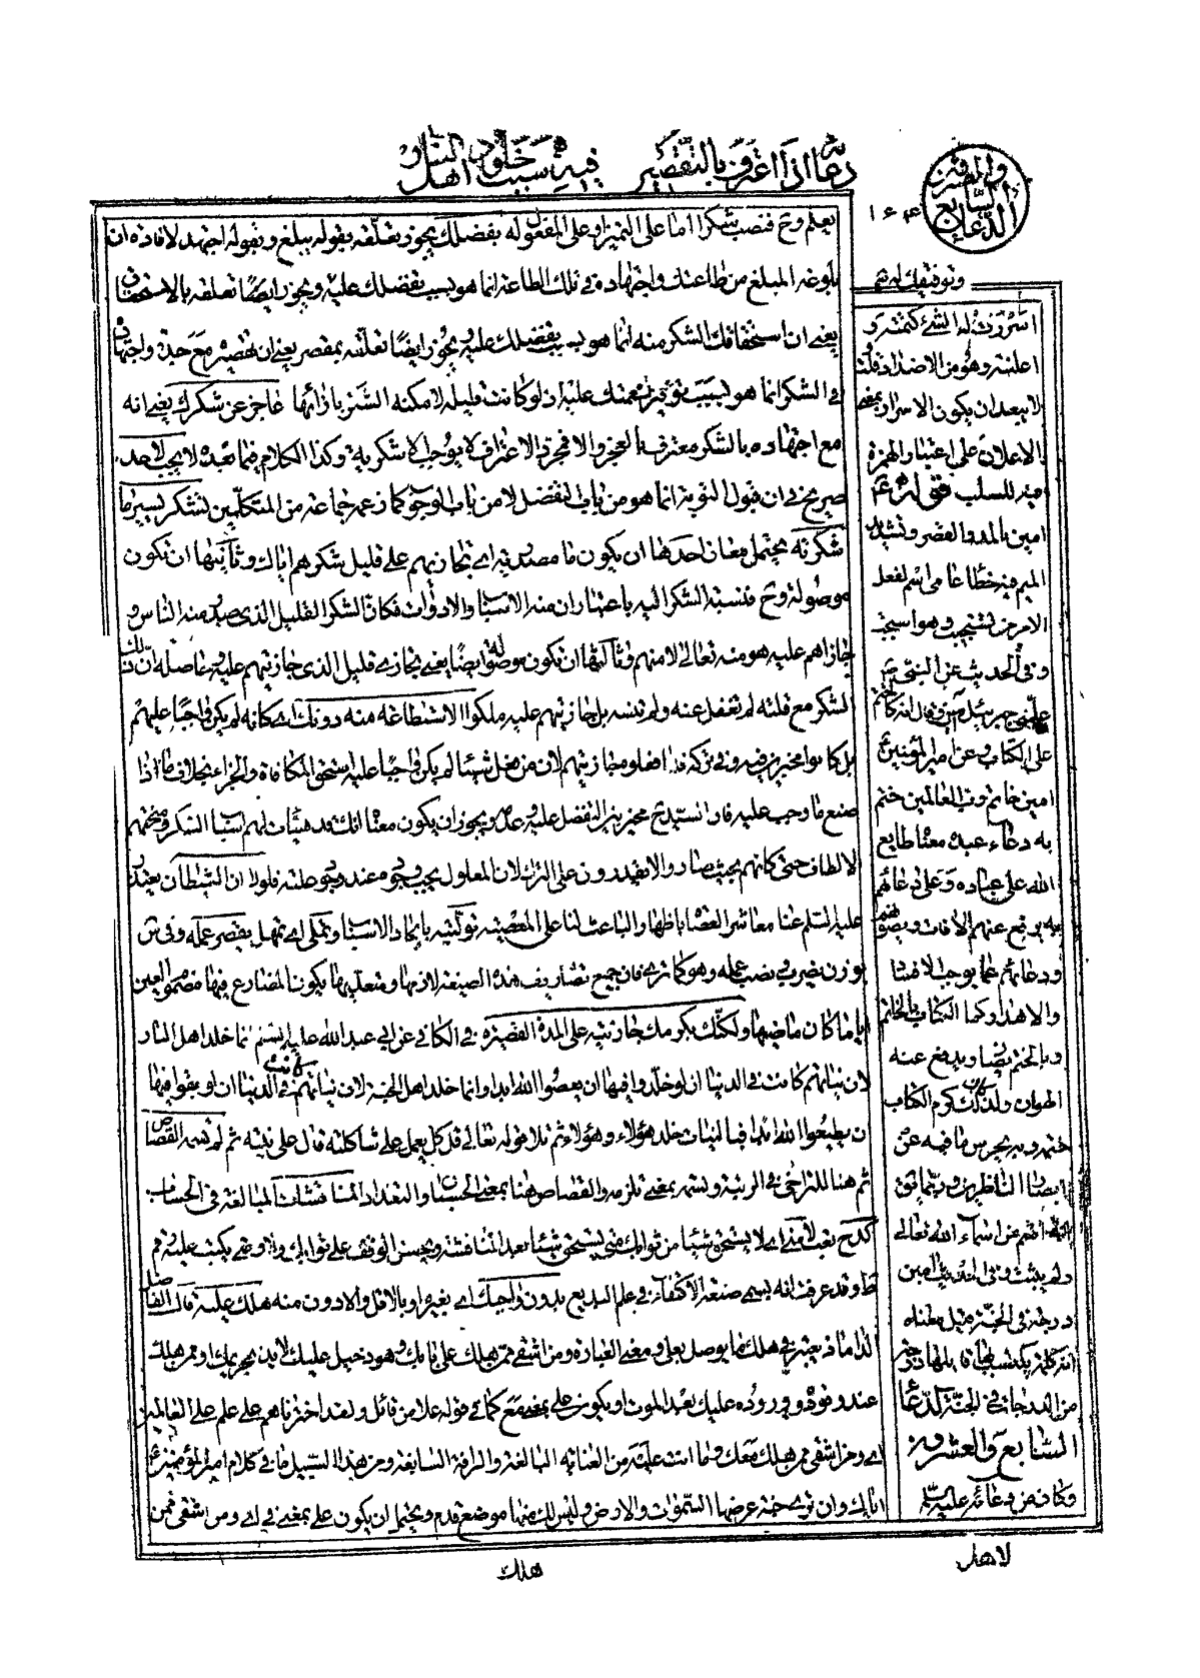 دعائه اذا اعترف بالتقصير فيه سبب خلود اهل النار
والمصرفة
السابع
الدعاء
يعلم وح فنصب شكرا اما على التميز او على المفعول له بفضلك يجوز تعلقه بقوله يبلغ وبقوله اجتهد لافادة ان
بلوغه المبلغ من طاعتك واجتهاده في تلك الطاعة انما هو بسبب تفضلك عليه ويجوز ايضا تعلقه بالاستحقاق
يعني ان استحقاقك الشكر منه انما هو بسبب تفضلك عليه ويجوز ايضا تعلقه بمقصر يعني ان تقصيره مع جده واجتهاده
في الشكر انما هو لسبب توفير نعمتك عليه اذ لو كانت قليلة لامكنه الشكر بازائها عاجز عن شكرك يعني انه
مع اجتهاده بالشكر معترف بالعجز والا فمجرد الاعتراف لا يوجب كاشكريه وكذا الكلام فيما بعده لا يجب لاحد
صريح في ان قبول التوبة انما هو من باب التفضل لا من باب الوجوب كما زعمه جماعة من المتكلمين تشكر يسير ما
شكرته يحتمل معان احدها ان يكون ما مصدرية اي تجازيهم على قليل شكرهم اياك وثانيها ان تكون
موصولة وح فنسبة الشكر اليه باعتبار ان منه الاسباب والادوات فكان الشكر القليل الذي صدر منه الناس و
جازاهم عليه هو منه تعالى لا منهم وثالثها ان تكون موصولة ايضا يعني تجازي قليل الذي جازيتهم عليه وحاصله ان ذلك
الشكر مع قلته لم تغفل عنه ولم تنسه بل جازيتهم عليه ملكوا الاستطاعة منه دونك اي كانه لم يكن واجبا عليهم
بل كانوا مخيرين فيه وفي تركه فمجازيتهم لان من فعل شيئا لم يكن واجبا عليه استحق المكافاة والجزاء بخلاف ما اذا
صنع ما وجب عليه فان السيد ح مخير بين التفضل عليه وعدمه ويجوز ان يكون معناه انك قد هيئات لهم اسباب الشكر ومنحتهم
الالطاف حتى كانهم بحيث صاروا لا يقدرون على الترك لان المعلول يجب وجوده عند وجود علته فلولا ان الشيطان يعني
عليه السلم عنا معاشر العصاة باظهار الباعث لنا على المعصية توكيته بايجاد الاسباب وتملي اي تمهل بقصر عمله وفي س
بوزن ضرب ونصب عمله وهو كما ترى فان جميع تصاريف هذه الصيغة لازمها ومتعديها يكون المضارع فيها مضموم العين
ايا ما كان ماضيها ولكنك بكرمك جازيته على المدة القصيرة في الكافي عن ابي عبد الله عليه السلم انما خلد اهل النار
لان نياتهم كانت في الدنيا ان لو خلدوا فيها ان يعصوا الله ابدا وانما خلد اهل الجنة لان نياتهم كانت في الدنيا ان لو بقوا فيها
ان يطيعوا الله ابدا فبالنيات خلد هؤلاء وهؤلاء ثم تلا قوله تعالى قل كل يعمل على شاكلته قال على نيته ثم لم تسمه القصاص
ثم هنا للتراخي في الرتبة وتسمه بمعنى تلزمه والقصاص هنا بمعنى الحساب والتعداد المناقشات المبالغة في الحساب
كدح تعب لا متى اي لا يستحق شيئا من ثوابك متى يستحق شيئا بعد المناقشة ويحسن الوقف على ثوابك ولا
وقد عرفت انه يسمى صنعة الاكتفاء في علم البديع بدون واجبك اي بغيره او بالاقل والادون منه هلك عليك قال الفاضل
الداماد يعتبر في هلك ما يوصل بعلى ومعنى العبارة ومن اشقى ممن هلك على بابك وهو دخيل عليك لايذ بحريمك او ممن هلك
عند وفوده ووروده عليك بعد الموت او يكون على بمعنى مع كما في قوله علا من قائل ولقد اخترناهم على علم على العالمين
اي ومن اشقى ممن هلك معك وما انت عليه من العناية البالغة والرافة السابغة ومن هذا السبيل ما في كلام امير المؤمنين ع
اياك وان ترى جنة عرضها السموات والارض وليس لك فيها موضع قدم ويحتمل ان يكون على بمعنى في اي ومن اشقى فمن
هلك
وتوفيقك له ثم
اسررت له الشئ كتمته و
اعلنته وهو من الاضداد قلت
لا يبعد ان يكون الاسرار بمعنى
الاعلان على اعتبار الهمزة
فيه للسلب
امين بالمد والقصر وتشديد
الميم فيه خطا عامي اسم لفعل
الامر من تستجيب وهو استجب
وفي الحديث عن النبي ص
علمني جبرئيل امين وقال انه كالختم
على الكتاب وعن امير المؤمنين ع
امين خاتم رب العالمين ختم
به دعاء عبده معناه طابع
الله على عباده وعلى دعائهم
به يدفع عنهم الافات ويصونهم
ودعائهم عما يوجب لافساد
والاهدار كما الكتاب بالخاتم
وبالختم يصان ويدفع عنه
الهوان ولذلك كان كرم الكتاب
ختمه وبه يحرس ما فيه عن
ابصار الناظرين وربما قيل
انه اسم من اسماء الله تعالى
ولم يثبت وفي الحديث امين
درجة في الجنة قيل معناه
انه كلمة يكتسب بها قايلها درجة
من الدرجات في الجنة الدعاء
السابع والعشرون
وكان من دعائه عليه السلم
لاهل